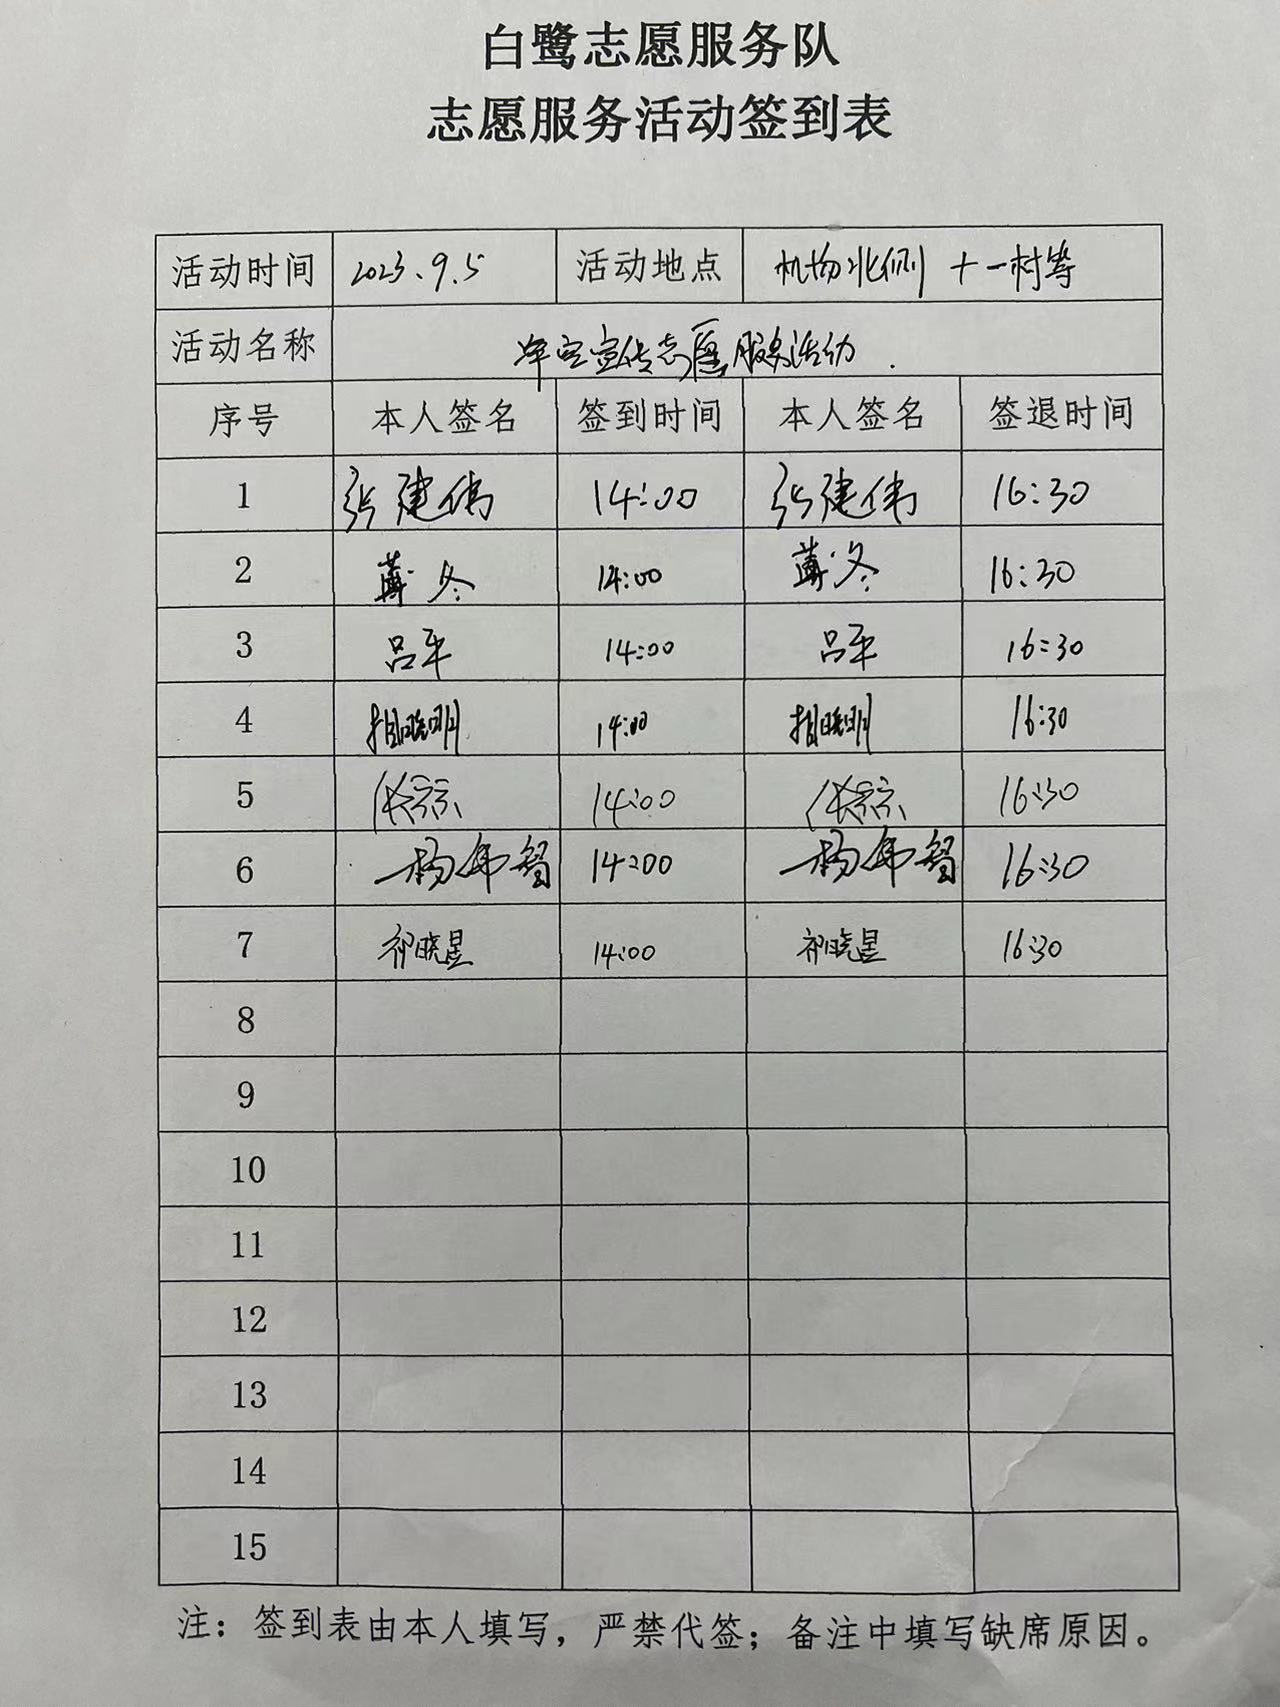 白鹭志愿服务队
志愿服务活动签到表
活动时间 2023.9.5 活动地点 机场北侧 十一村等
活动名称 净空宣传志愿服务活动.
序号 本人签名 签到时间 本人签名 签退时间
1 张建伟 14:00 张建伟 16:30
2 薄冬 14:00 薄冬 16:30
3 吕平 14:00 吕平 16:30
4 相晓明 14:00 相晓明 16:30
5 14:00 16:30
6 14:00 16:30
7 祁晓星 14:00 祁晓星 16:30
8
9
10
11
12
13
14
15
注：签到表由本人填写，严禁代签；备注中填写缺席原因。